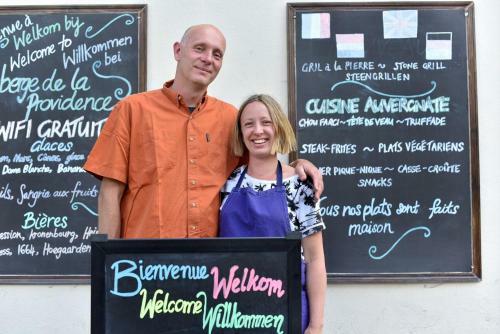 Welkom bij
Welcome to
Willkommen bei
berge de la
Providence
WIFI GRATUIT
Glaces
Dame Blanche, Banana
Sangria aux fruits
Bières
Kronenbourg,
1664, Hoegaarden
GRIL à la PIERRE ~ STONE GRILL
STEENGRILLEN
CUISINE AUVERGNATE
CHOU FARCI ~ TÊTE DE VEAU ~ TRUFFADE
STEAK-FRITES ~ PLATS VÉGÉTARIENS
PIQUE-NIQUE ~ CASSE-CROÛTE
SNACKS
nos plats sont faits
maison
Bienvenue Welkom
Welcome Willkommen